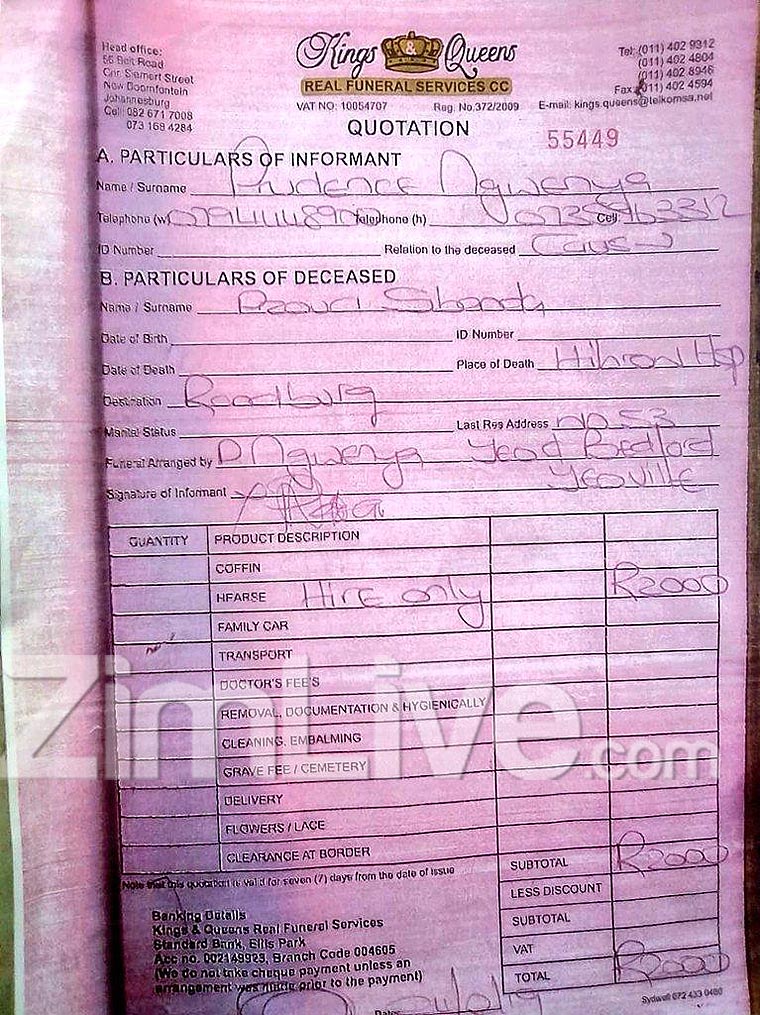 Head office:
56 Beit Road
Cnr. Siemert Street
New Doornfontein
Johannesburg
Cell: 082 671 7008
073 168 4284
Kings & Queens
REAL FUNERAL SERVICES CC
VAT NO: 10054707 Reg. No.372/2009
Tel: (011) 402 9312
(011) 402 4804
(011) 402 8946
Fax: (011) 402 4594
E-mail: kings.queens@telkomsa.net
QUOTATION
55449
A. PARTICULARS OF INFORMANT
Name / Surname Prudence Ngwenya
Telephone (w) Telephone (h) Cell
ID Number Relation to the deceased
B. PARTICULARS OF DECEASED
Name / Surname
Date of Birth ID Number
Date of Death Place of Death Hilbrow Hsp
Destination
Marital Status Last Res Address NO 53
Funeral Arranged by P Ngwenya Bedford
Signature of Informant YEOVILLE
QUANTITY PRODUCT DESCRIPTION
COFFIN
HEARSE HIRE only R2000
FAMILY CAR
TRANSPORT
DOCTOR'S FEE'S
REMOVAL, DOCUMENTATION & HYGIENICALLY
CLEANING, EMBALMING
GRAVE FEE / CEMETERY
DELIVERY
FLOWERS / LACE
CLEARANCE AT BORDER
SUBTOTAL R2000
LESS DISCOUNT
SUBTOTAL
VAT
TOTAL R2000
Note that this quotation is valid for seven (7) days from the date of issue
Banking Details
Kings & Queens Real Funeral Services
Standard Bank, Ellis Park
Acc no. 002149923, Branch Code 004605
(We do not take cheque payment unless an
arrangement was made prior to the payment)
Date:
Sydwell 072 433 0480
ZimLive.com